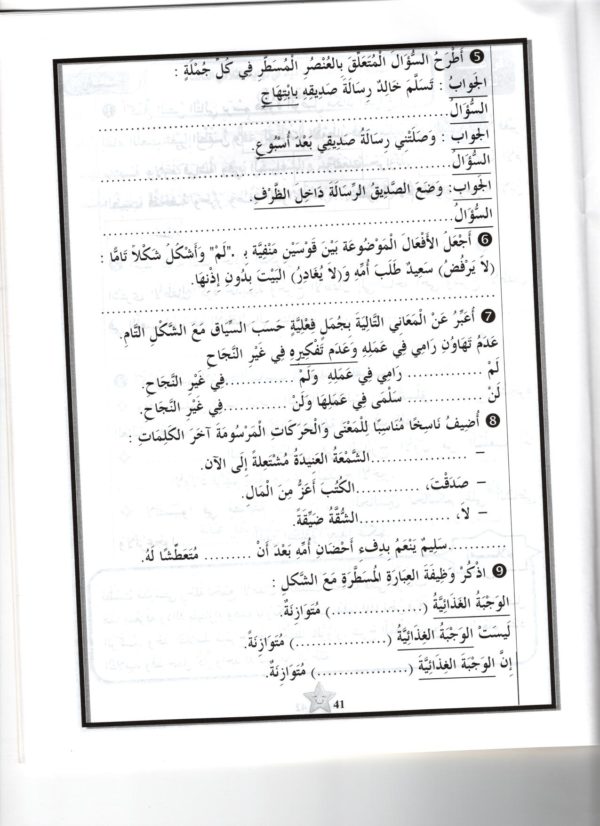 ❺ أَطْرَحُ السُّؤَالَ الْمُتَعَلِّقَ بِالْعُنْصُرِ الْمُسَطَّرِ فِي كُلِّ جُمْلَةٍ :
الجَوابُ : تَسَلَّمَ خَالِدٌ رِسَالَةَ صَدِيقِهِ بِابْتِهَاجٍ
السُّؤَالُ ........................................
الجَوابُ : وَصَلَتْنِي رِسَالَةُ صَدِيقِي بَعْدَ أُسْبُوعٍ.
السُّؤَالُ ........................................
الجَوابُ: وَضَعَ الصَّدِيقُ الرِّسَالَةَ دَاخِلَ الظَّرْفِ.
السُّؤَالُ ........................................
❻ أَجْعَلُ الأَفْعَالَ الْمَوْضُوعَةَ بَيْنَ قَوْسَيْنِ مَنْفِيَّةً بِـ ."لَمْ" وَأَشْكُلُ شَكْلاً تَامًّا :
(لاَ يَرْفُضُ) سَعِيدٌ طَلَبَ أُمِّهِ وَ(لاَ يُغَادِرُ) البَيْتَ بِدُونِ إِذْنِهَا.
........................................
❼ أُعَبِّرُ عَنْ الْمَعَانِي التَّالِيَةِ بِجُمَلٍ فِعْلِيَّةٍ حَسَبَ السِّيَاقِ مَعَ الشَّكْلِ التَّامِ.
عَدَمُ تَهَاوُنِ رَامِي فِي عَمَلِهِ وَعَدَم تَفْكِيرِهِ فِي غَيْرِ النَّجَاحِ
لَمْ ............ رَامِي فِي عَمَلِهِ وَلَمْ ............فِي غَيْرِ النَّجَاحِ.
لَنْ ............ سَلْمَى فِي عَمَلِهَا وَلَنْ ............فِي غَيْرِ النَّجَاحِ.
❽ أُضِيفُ نَاسِخًا مُنَاسِبًا لِلْمَعْنَى وَالْحَرَكَاتِ الْمَرْسُومَةِ آخِرَ الكَلِمَاتِ :
– ................الشَّمْعَةُ العَنِيدَةُ مُشْتَعِلَةً إِلَى الآن.
– صَدَقْتَ، ...............الكُتُبَ أَعَزُّ مِنَ الْمَالِ.
– لاَ، ...............الشُّقَّةُ ضَيِّقَةً.
...........سَلِيمٌ يَنْعَمُ بِدِفْءِ أَحْضَانِ أُمِّهِ بَعْدَ أَنْ ......... مُتَعَطِّشًا لَهُ.
❾ اذْكُرْ وَظِيفَةَ العِبَارَةِ الْمُسَطَّرَةِ مَعَ الشَّكْلِ :
الوَجْبَةُ الغَذَائِيَّةُ (...............) مُتَوَازِنَةٌ.
لَيسَتْ الوَجْبَةُ الغِذَائِيَّةُ (...............) مُتَوَازِنَةً.
إِنَّ الوَجْبَةَ الغِذَائِيَّةَ (...............) مُتَوَازِنَةٌ.
41